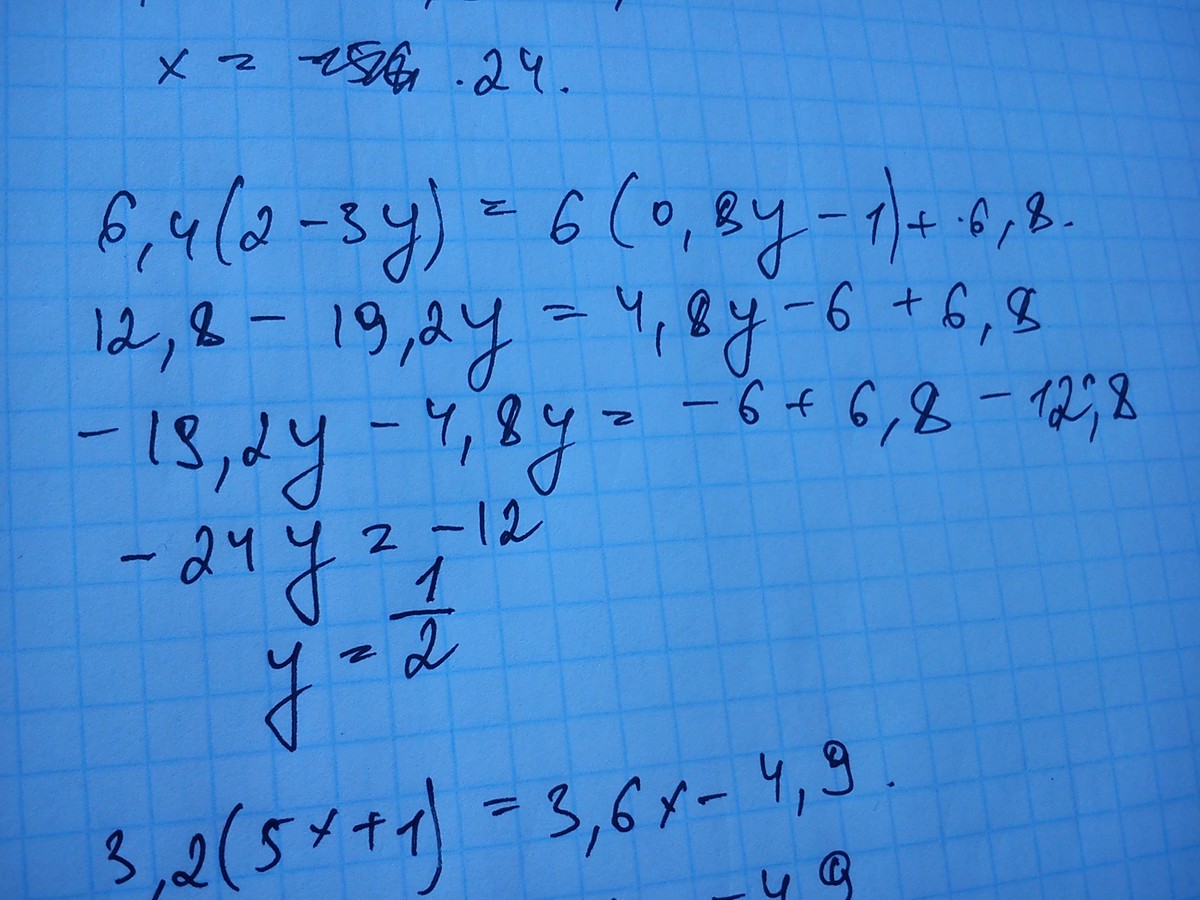 x = .24.
6,4(2 - 3y) = 6(0,8y - 1) + 6,8.
12,8 - 19,2y = 4,8y - 6 + 6,8
- 19,2y - 4,8y = - 6 + 6,8 - 12,8
- 24y = - 12
y = 1/2
3,2(5x + 1) = 3,6x - 4,9.
- 4 9